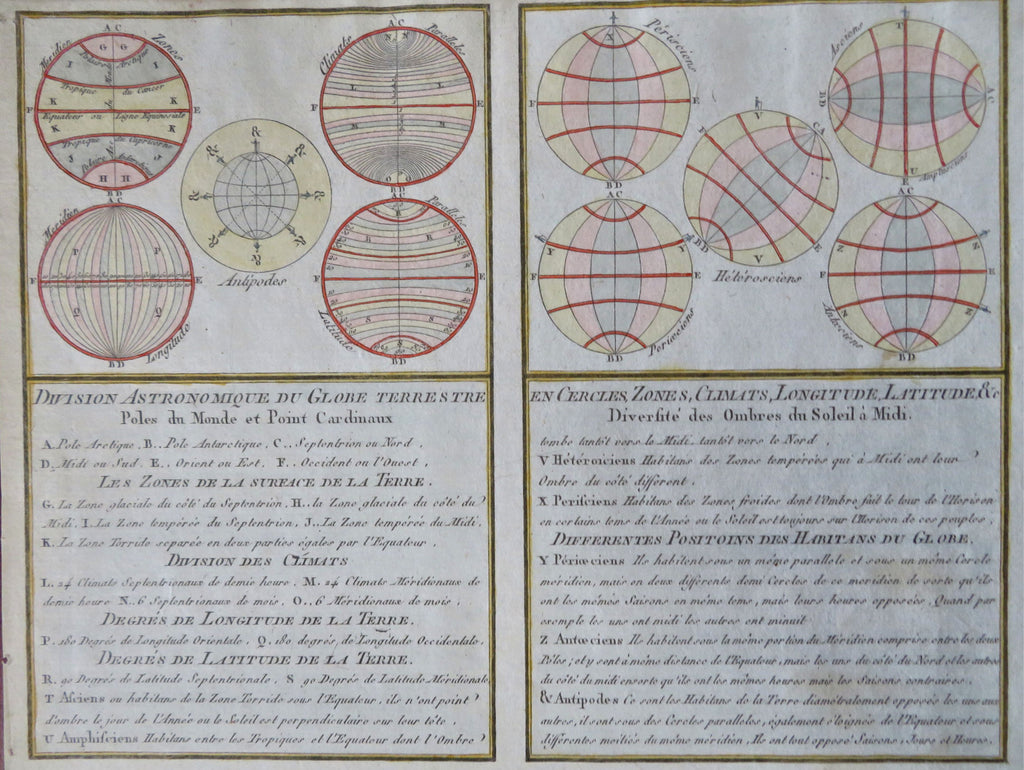 A C
Meridien
Zones
G G
I I
Polaire Arctique
Tropique du Cancer
K K
F E
Equateur ou Ligne Equinoxiale
K K
Tropique du Capricorne
J J
Polaire Antarctique
H H
B D
Climats
A C
Paralleles
N N
L L
F E
M M
O O
B D
&
& &
& &
& &
&
Antipodes
Meridien
A C
P P
F E
Q Q
B D
Longitude
A C
Paralleles
R R
F E
S S
Latitude
B D
A C
X
Périsciens
F E
B D
Asciens
F
T
B D
A C
U
E
Amphisciens
F
V
C A
B D
V
E
Hétérosciens
A C
Y Y
F E
B D
Periœciens
A C
Z Z
F E
Antœciens
B D
DIVISION ASTRONOMIQUE DU GLOBE TERRESTRE
Poles du Monde et Point Cardinaux
A. Pole Arctique, B.. Pole Antarctique, C.. Septentrion ou Nord,
D. Midi ou Sud, E.. Orient ou Est, F.. Occident ou l'Ouest,
LES ZONES DE LA SURFACE DE LA TERRE.
G. La Zone glaciale du côté du Septentrion, H. la Zone glaciale du côté du
Midi, I. La Zone tempérée du Septentrion, J. La Zone temperée du Midi,
K. La Zone Torride separée en deux parties égales par l'Equateur,
DIVISION DES CLIMATS
L. 24 Climats Septentrionaux de demie heure, M. 24 Climats Méridionaux de
demie heure N.. 6 Septentrionaux de mois, O.. 6 Méridionaux de mois,
DEGRÉS DE LONGITUDE DE LA TERRE.
P. 180 Degrés de Longitude Orientale, Q. 180 degrés de Longitude Occidentale,
DEGRÉS DE LATITUDE DE LA TERRE.
R. 90 Degrés de Latitude Septentrionale, S 90 Degrés de Latitude Méridionale
T Asciens ou habitans de la Zone Torride sous l'Equateur, ils n'ont point
d'ombre le jour de l'Année ou le Soleil est perpendiculaire sur leur tête.
U Amphisciens Habitans entre les Tropiques et l'Equateur dont l'Ombre
EN CERCLES, ZONES, CLIMATS, LONGITUDE, LATITUDE, &c
Diversité des Ombres du Soleil à Midi.
tombe tantôt vers le Midi tantôt vers le Nord,
V Hétérosciens Habitans des Zones tempérées qui à Midi ont leur
Ombre du côté différent.
X Perisciens Habitans des Zones froides dont l'Ombre fait le tour de l'Horison
en certains tems de l'Année ou le Soleil est toujours sur l'Horison de ces peuples,
DIFFERENTES POSITOINS DES HABITANS DU GLOBE,
Y Périœciens Ils habitent sous un même parallele et sous un même Cercle
méridien, mais en deux différents demi Cercles de ce meridien de sorte qu'ils
ont les mêmes Saisons en même tems, mais leurs heures opposées, Quand par
exemple les uns ont midi les autres ont minuit
Z Antœciens Ils habitent sous la même portion du Méridien comprise entre les deux
Pôles; et y sont à même distance de l'Equateur, mais les uns du côté du Nord et les autres
du côté du midi ensorte qu'ils ont les mêmes heures mais les Saisons contraires.
& Antipodes Ce sont les Habitans de la Terre diamétralement opposés les uns aux
autres, il sont sous des Cercles paralleles, également éloignés de l'Equateur et sous
différentes moitiés du même méridien, Ils ont tout opposé Saisons, Jours et Heures.